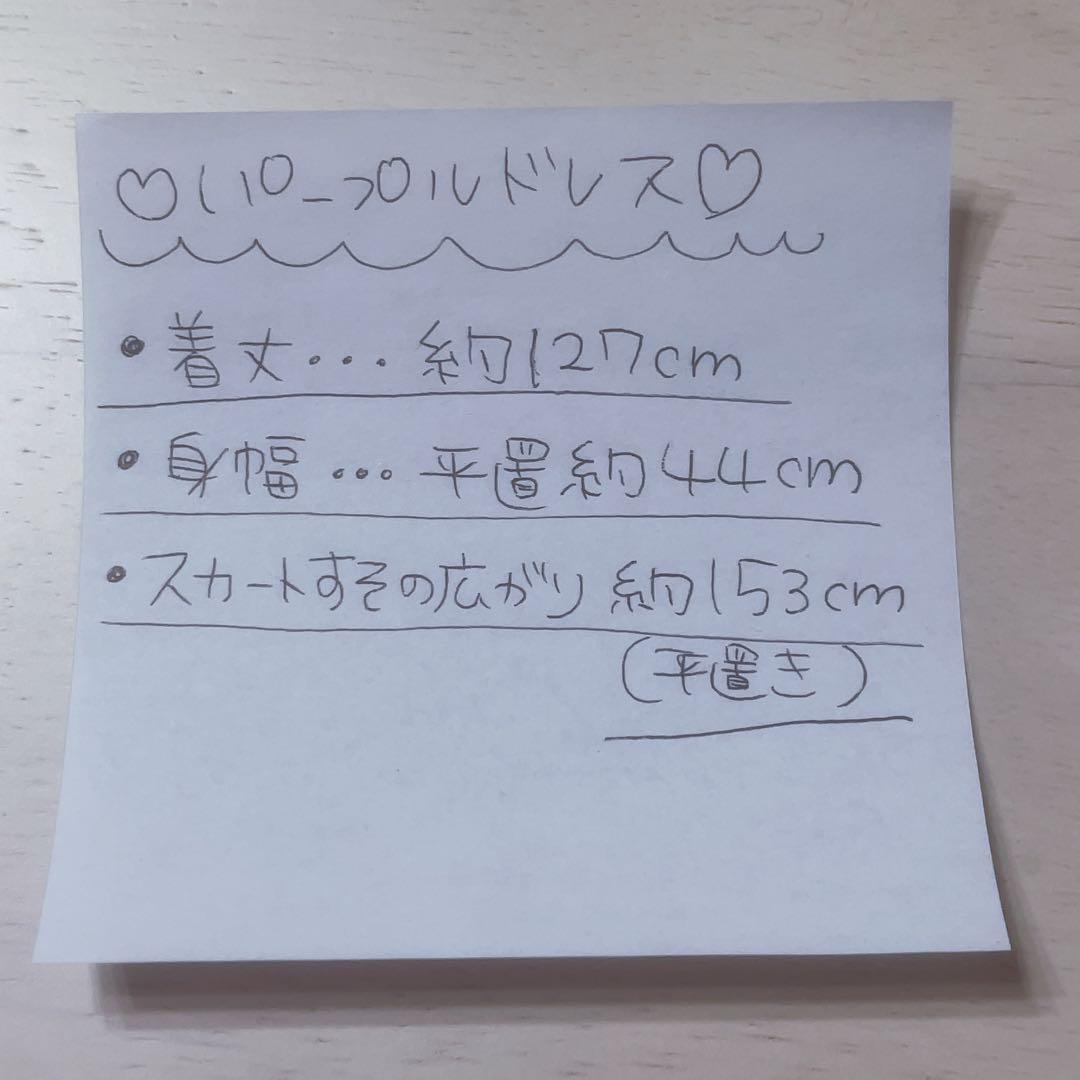 ♡パープルドレス♡
・着丈・・・約127cm
・身幅・・・平置約44cm
・スカートすその広がり 約153cm
(平置き)